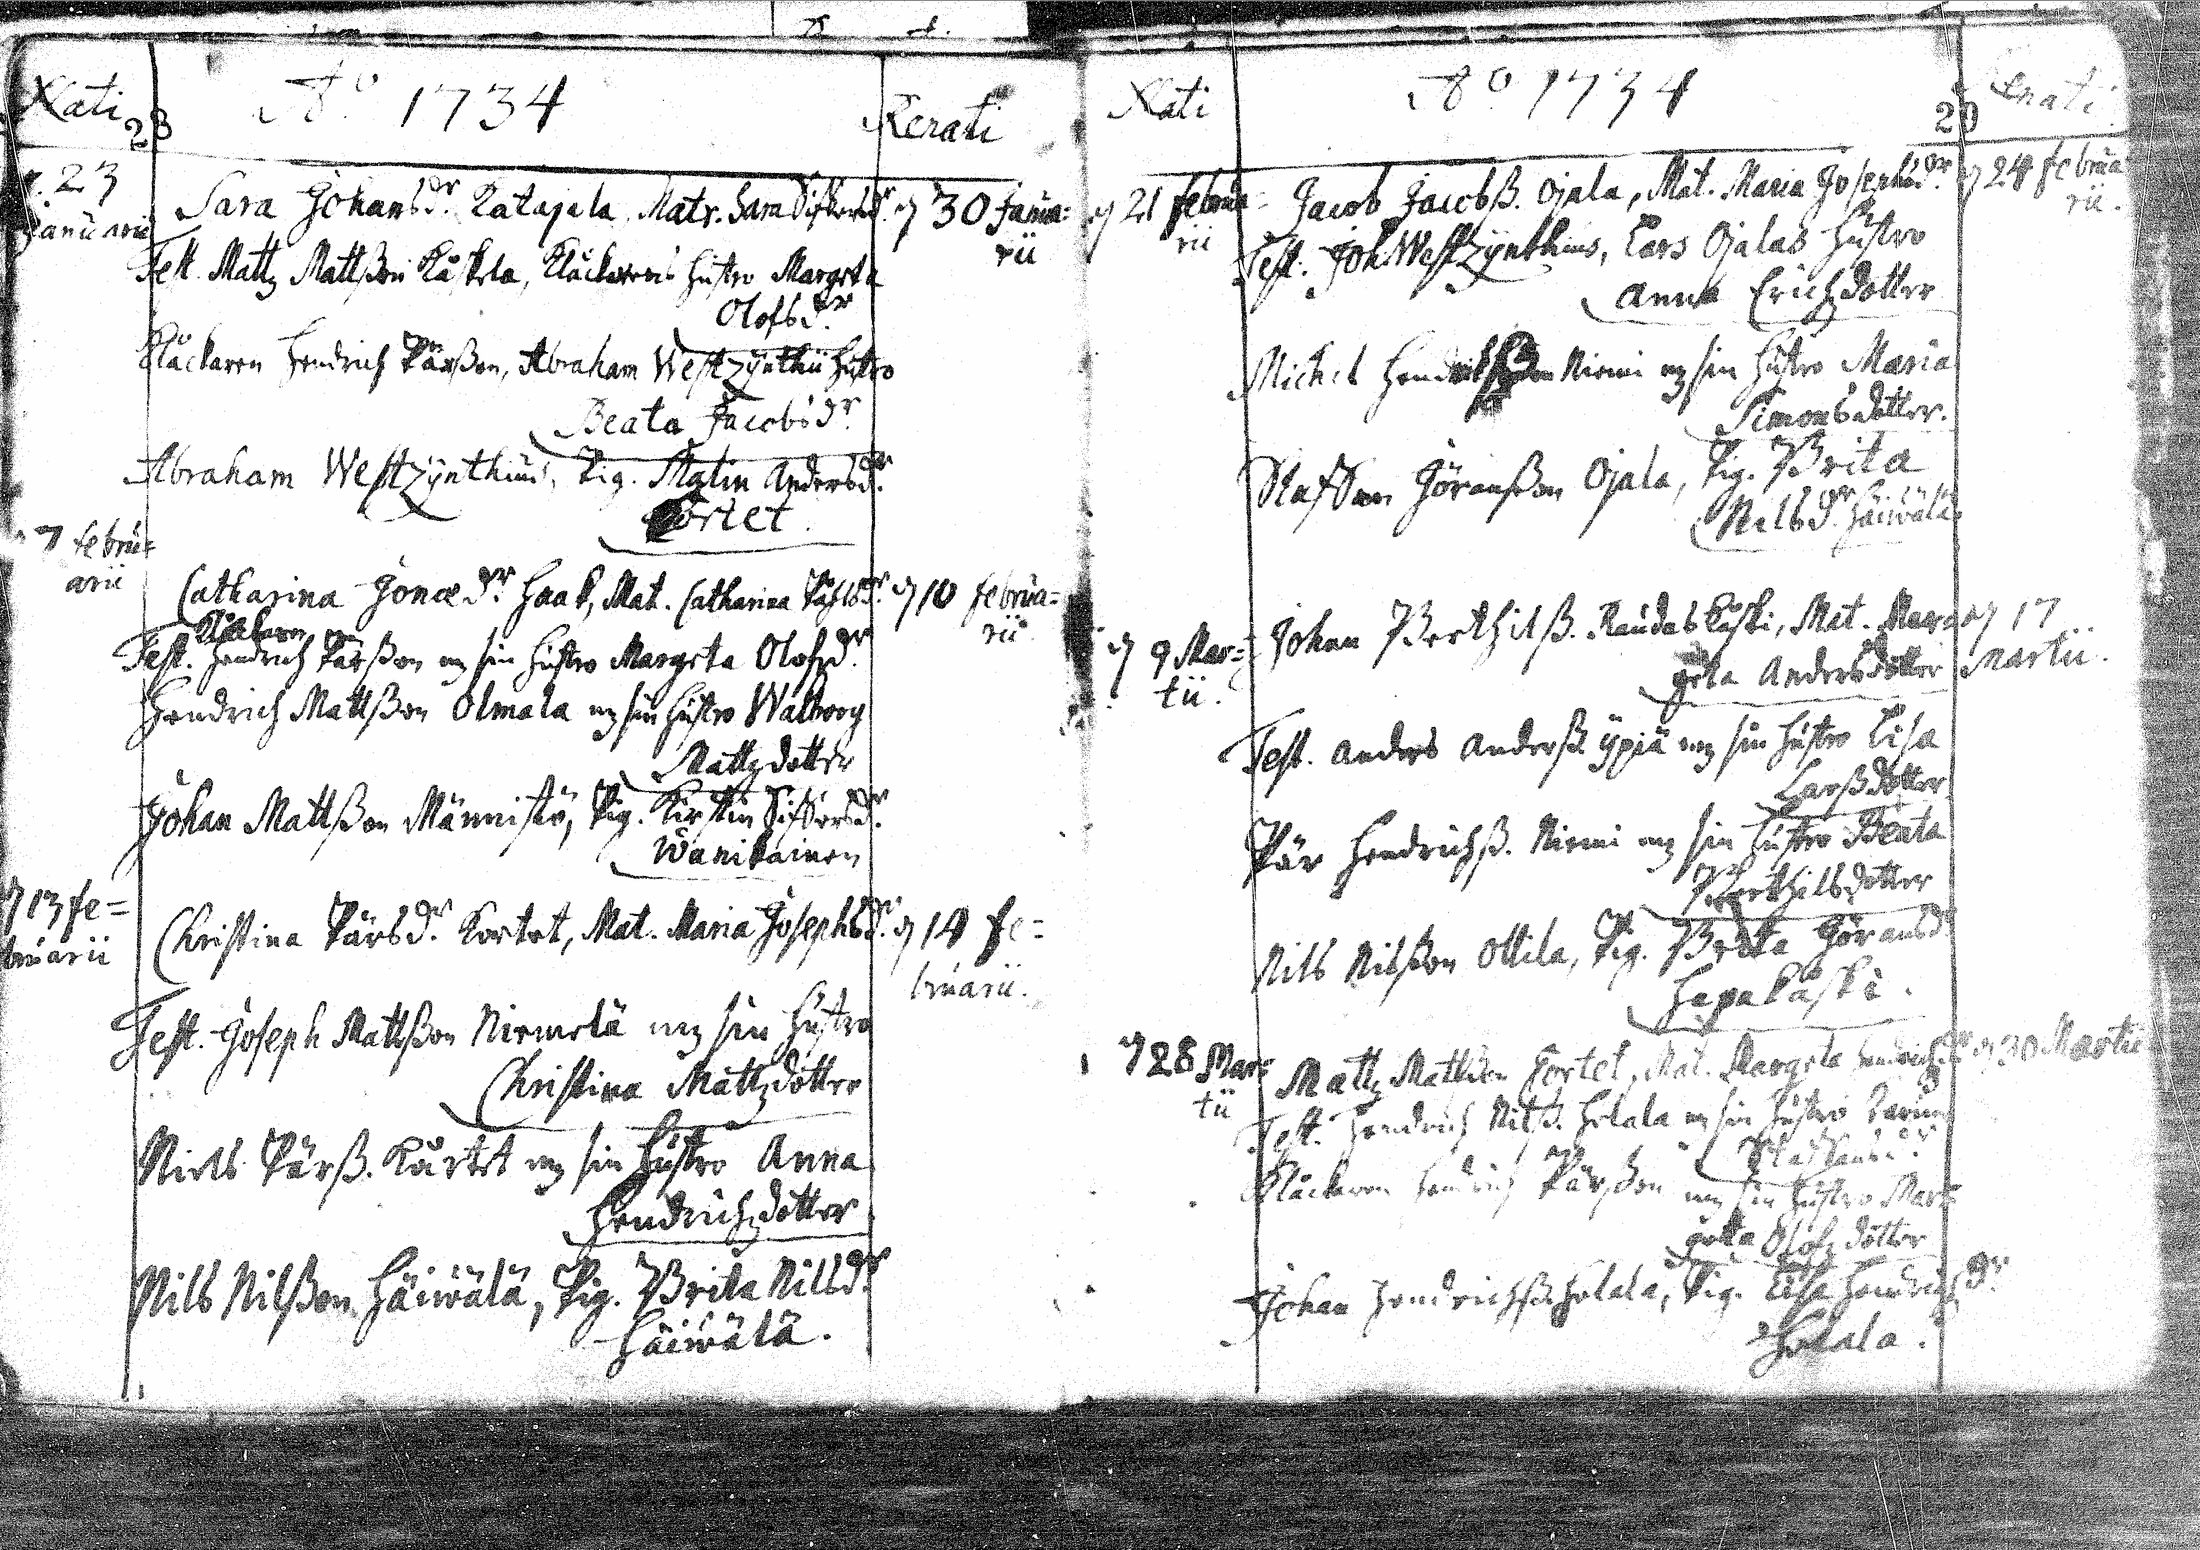 Nati 28 A:o 1734 Renati
23 Januarii
Sara Johansd:r Katajala, Matr. Sara Siffersd:r d 30 Janua=
rii
Test. Mattz Mattßon Kåskela, Klåckarens hustro Margeta
Olofsd:r
Klåckaren Hendrich Pärßon, Abraham Westzynthii hustro
Beata Jacobsd:r
Abraham Westzynthius, Pig. Malin Andersd:r
Kortet.
7 febru=
arii
Catharina Jonæd:r Haak, Mat. Catharina Påhlsd:r d 10 februa=
rii.
Klåckaren
Test. Hendrich Pärßon mz sin hustro Margeta Olofzd:r
Hendrich Mattßon Olmala mz sin hustro Walborg
Mattzdotter
Johan Mattßon Männistö, Pig. Kirstin Siffersd:r
Wanikainen
d 13 fe=
bruarii
Christina Pärsd:r Kortet, Mat. Maria Josephsd:r d 14 fe=
bruarii.
Test. Joseph Mattßon Niemelä mz sin hustro
Christina Mattzdotter
Niels Pärß. Kårtet mz sin hustro Anna
Hendrichzdotter
Nils Nilßon Häiwälä, Pig. Brita Nilsd:r
Häiwälä.
Nati A:o 1734 29 Renati
d 21 februa=
rii
Jacob Jacobß. Ojala, Mat. Maria Josephsd:r d 24 februa
rii.
Test. Joh. Westzynthius, Lars Ojalas hustro
Anna Erichzdotter
Michel Niemi mz sin hustro Maria
Simonsdotter.
Staffan Göranßon Ojala, Pig. Brita
Nilsd:r Häiwälä
d 9 Mar=
tii.
Johan Berthilß. Raudaskåski, Mat. Mar= d 17
greta Andersdotter Martii.
Test. Anders Anderß. Ypiä mz sin hustro Lisa
Larßdotter
Pär Hendrichß. Niemi mz sin hustro Beata
Berthilsdotter
Nils Nilßon Ollila, Pig. Brita Göransd:r
Hapakåski.
d 28 Mar=
tii
Mattz Mattßon Kortet, Mat. Margeta Hendrichzd:r d 30 Martii
Test. Hendrich Nilß. Holala mz sin hustro Carin
Staffansd:r
Klåckaren Hendrich Pärßon mz sin hustro Mar=
geta Olofzdotter
Johan Hendrichß. Holala, Pig. Lisa Hendrichzd:r
Holala.